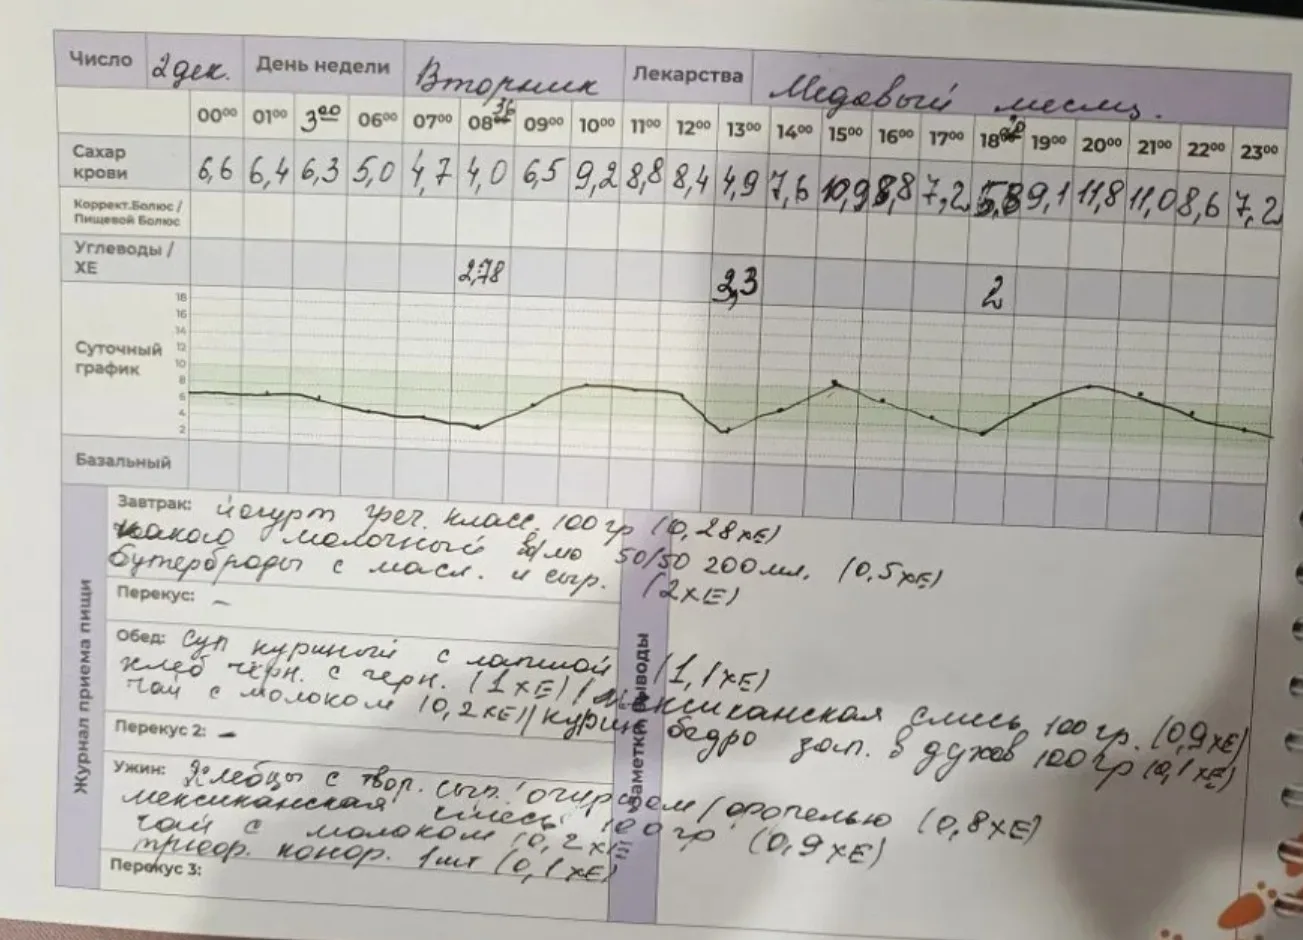 Число 2 дек. День недели Вторник Лекарства Медовый месяц.
00⁰⁰ 01⁰⁰ 3⁰⁰ 06⁰⁰ 07⁰⁰ 08³⁶ 09⁰⁰ 10⁰⁰ 11⁰⁰ 12⁰⁰ 13⁰⁰ 14⁰⁰ 15⁰⁰ 16⁰⁰ 17⁰⁰ 18 19⁰⁰ 20⁰⁰ 21⁰⁰ 22⁰⁰ 23⁰⁰
Сахар крови 6,6 6,4 6,3 5,0 4,7 4,0 6,5 9,2 8,8 8,4 4,9 7,6 10,9 8,8 7,2 5,8 9,1 11,8 11,0 8,6 7,2
Коррект.Болюс /
Пищевой Болюс
Углеводы /
ХЕ 2,78 3,3 2
18
16
14
12
10
8
6
4
2
Суточный
график
Базальный
Журнал приема пищи
Завтрак: йогурт греч. класс. 100 гр (0,28 хЕ)
какао молочный 50/50 200 мл. (0,5 хЕ)
бутерброды с масл. и сыр. (2 хЕ)
Перекус: –
Обед: Суп куриный с лапшой (1,1 хЕ)
хлеб чёрн. с черн. (1 хЕ) / мексиканская смесь 100 гр. (0,9 хЕ)
чай с молоком (0,2 хЕ) / курин. бедро зап. в духов 100 гр (0,1 хЕ)
Перекус 2: –
Ужин: Хлебцы с твор. сыр. огурцом / форелью (0,8 хЕ)
мексиканская смесь 100 гр (0,9 хЕ)
чай с молоком (0,2 хЕ)
1 шт (0,1 хЕ)
Перекус 3:
Заметки выводы